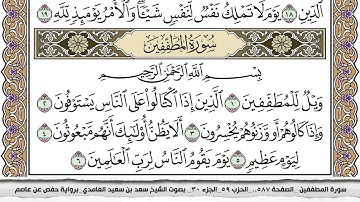 ٱلدِّينِ ١٨ يَوۡمَ لَا تَمۡلِكُ نَفۡسٞ لِّنَفۡسٖ شَيۡـٔٗاۖ وَٱلۡأَمۡرُ يَوۡمَئِذٖ لِّلَّهِ ١٩
سُورَةُ ٱلْمُطَفِّفِينَ
بِسۡمِ ٱللَّهِ ٱلرَّحۡمَٰنِ ٱلرَّحِيمِ
وَيۡلٞ لِّلۡمُطَفِّفِينَ ١ ٱلَّذِينَ إِذَا ٱكۡتَالُواْ عَلَى ٱلنَّاسِ يَسۡتَوۡفُونَ ٢
وَإِذَا كَالُوهُمۡ أَو وَّزَنُوهُمۡ يُخۡسِرُونَ ٣ أَلَا يَظُنُّ أُوْلَٰٓئِكَ أَنَّهُم مَّبۡعُوثُونَ ٤
لِيَوۡمٍ عَظِيمٖ ٥ يَوۡمَ يَقُومُ ٱلنَّاسُ لِرَبِّ ٱلۡعَٰلَمِينَ ٦
سورة المطففين _ الصفحة ٥٨٧ _ الحزب ٥٩ _ الجزء ٣٠ _ بصوت الشيخ سعد بن سعيد الغامدي _ برواية حفص عن عاصم